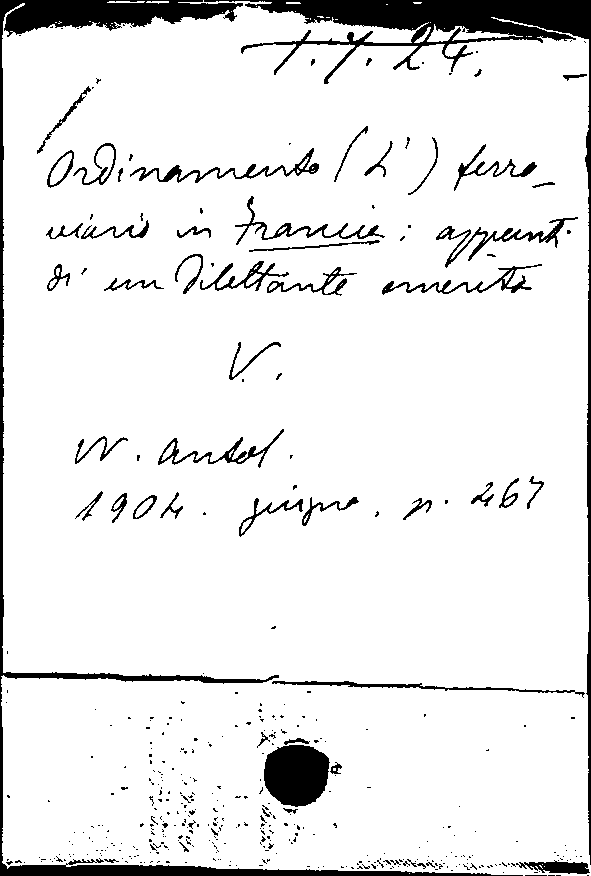 1.7.24.
Ordinamento (L') ferro_
viario in Francia; appunti
di un dilettante emerito
V.
N. Antol.
1904. giugno, p. 467